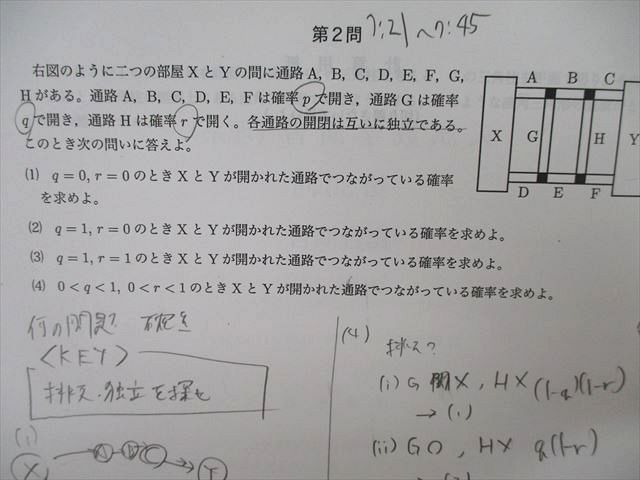 第2問 7:21〜7:45
右図のように二つの部屋XとYの間に通路A, B, C, D, E, F, G,
Hがある。通路A, B, C, D, E, Fは確率pで開き, 通路Gは確率
qで開き, 通路Hは確率rで開く。各通路の開閉は互いに独立である。
このとき次の問いに答えよ。
(1) q=0, r=0のときXとYが開かれた通路でつながっている確率
を求めよ。
(2) q=1, r=0のときXとYが開かれた通路でつながっている確率を求めよ。
(3) q=1, r=1のときXとYが開かれた通路でつながっている確率を求めよ。
(4) 0<q<1, 0<r<1のときXとYが開かれた通路でつながっている確率を求めよ。
A B C
X G H Y
D E F
何の問題? 確率
<KEY>
排反・独立を探せ
(1)
X A B C Y
(4)
排反?
(i) G 開×, H× (1-q)(1-r)
→ (1)
(ii) G○, H× q(1-r)